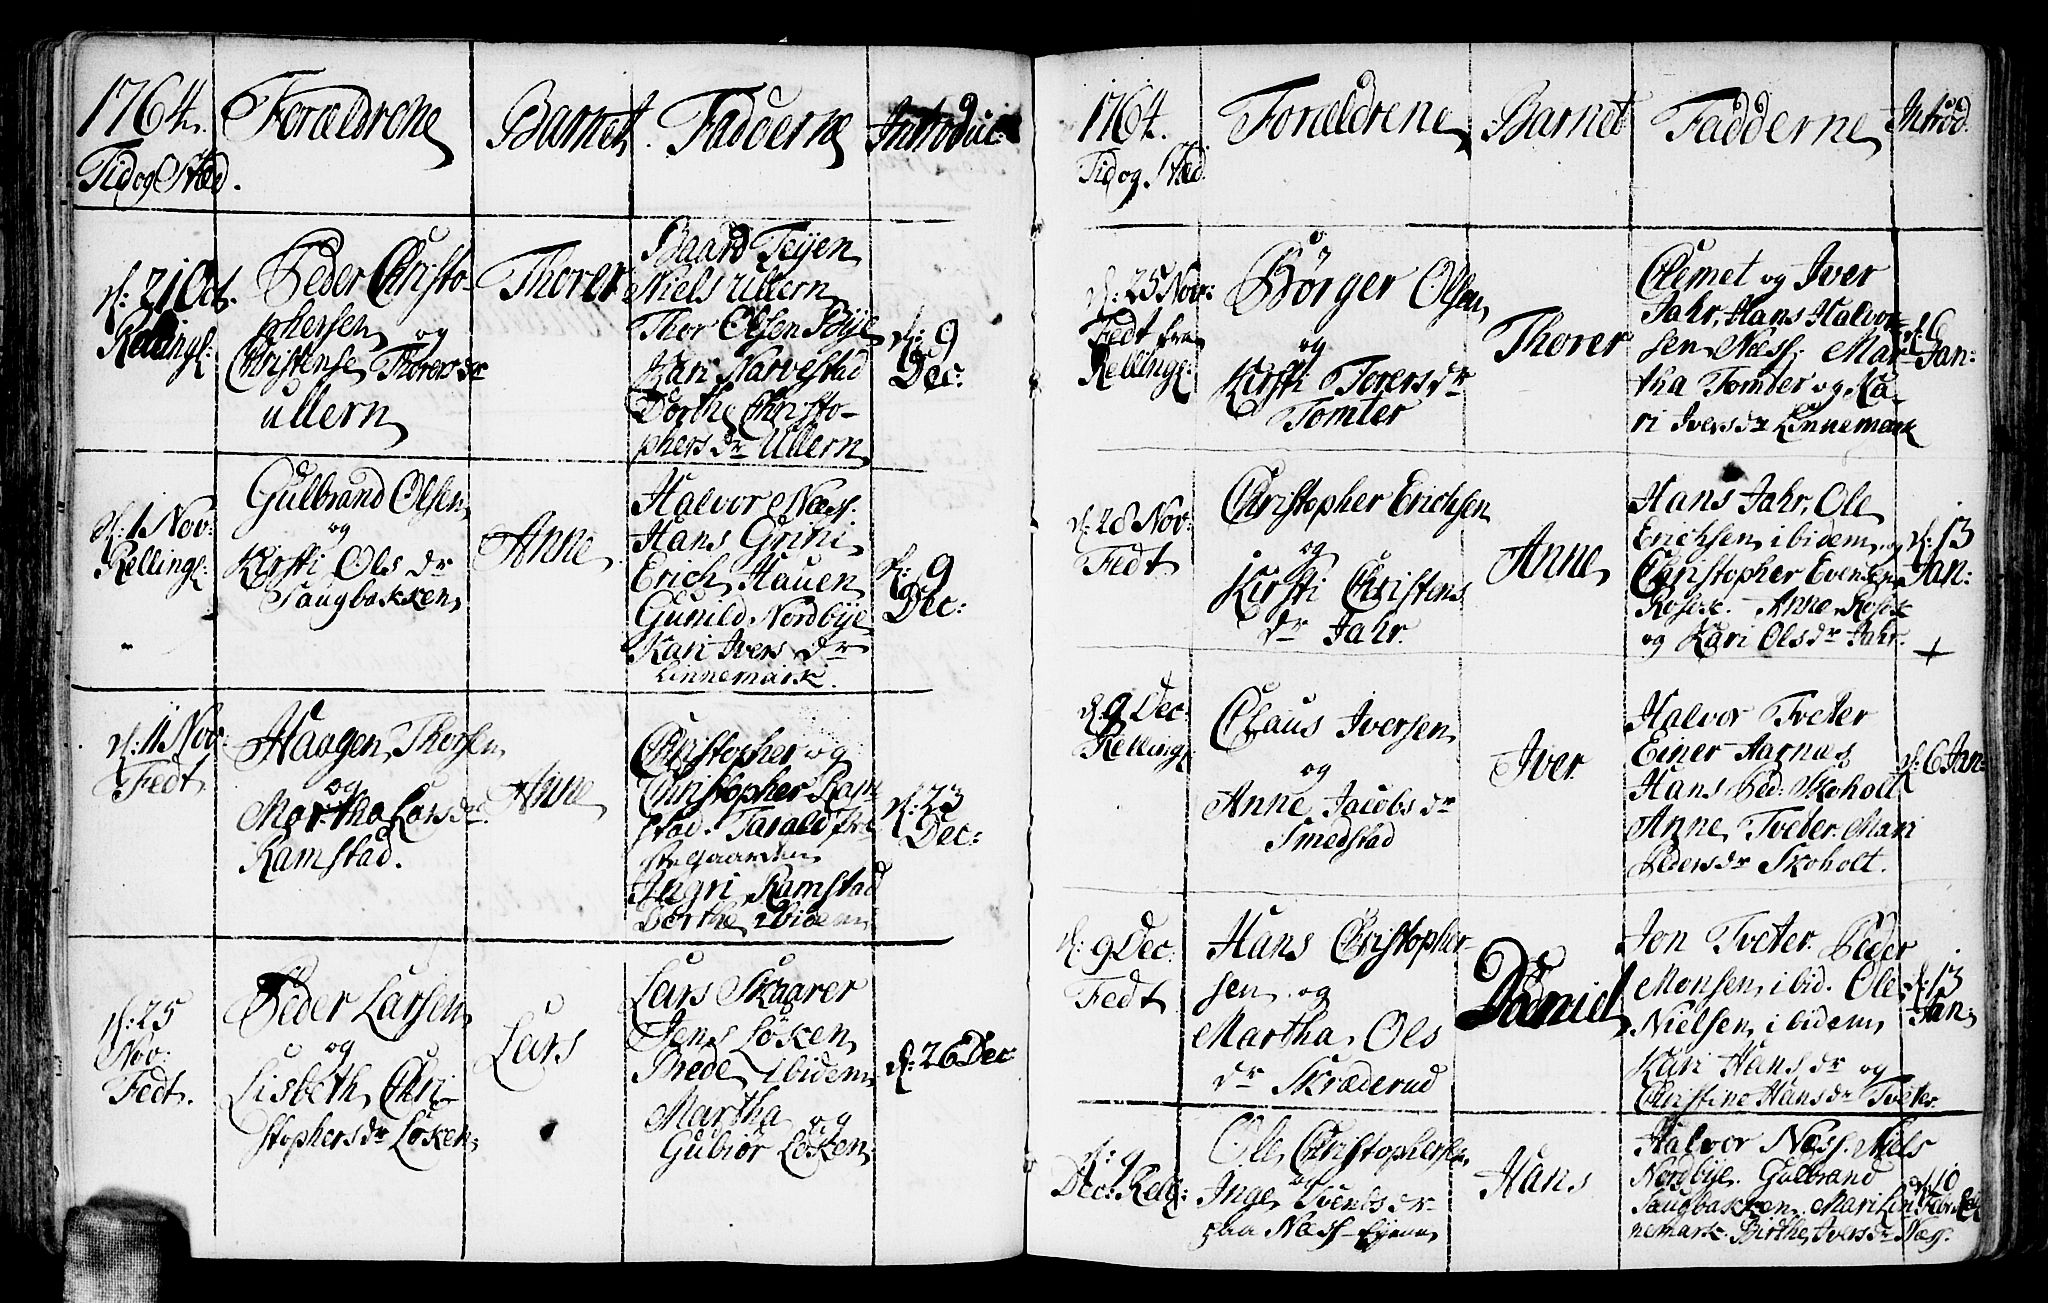 1764.
Tid og Stæd.
Forældrene
Barnet
Fadderne
Introduc:
d: 21 Oct.
Rellingl:
Peder Christo-
phersen og
Christense Thorers dr
Ullern
Thorer
Baard Teijen
Niels Ullern
Thor Olsen Bije
Kari Narvestad
Dorthe Christo-
phers dr Ullern
d: 9
Dec:
d: 1 Nov:
Rellingl:
Gulbrand Olsen
og
Kirsti Ols dr
Saugbakken
Anne
Halvor Næss.
Hans Grini
Erich Hauen
Gunild Nordbije
Kari Ivers dr
Linnemark.
d: 9
Dec:
d: 11 Nov:
Fedt
Haagen Thorsen
og
Martha Lars dr.
Ramstad.
Anne
Christopher og
Christopher Ram-
stad. Tarald
Ingri Ramstad
Dorthe ibidem
d: 23
Dec:
d: 25
Nov:
Fedt.
Peder Larsen
og
Lisbeth Chri-
stophers dr Løken
Lars
Lars Skaarer
Jens Løken
Brede ibidem
Martha og
Gubiør Løken
d: 26 Dec
1764.
Tid og Stæd.
Forældrene
Barnet
Fadderne
Introd.
d: 25 Nov:
Fedt fra
Rellingl:
Børger Olsen
og
Kirsti Torers dr
Tomter
Thorer
Clemet og Iver
Jahr, Hans Halvor-
sen Næss. Mar-
tha Tomter og Ka-
ri Ivers dr Linnemark
d: 6
Jan:
d: 28 Nov:
Fedt
Christopher Erichsen
og
Kirsti Christens
dr Jahr.
Anne
Hans Jahr, Ole
Erichsen ibidem og
Christopher Evensen
Anne
og Kari Ols dr Jahr.
d: 13
Jan:
+
d. 9 Dec:
Rellingl
Claus Iversen
og
Anne Jacobs dr
Smedstad
Iver
Halvor Tveter
Einer Aarnæs
Hans Ped: Skoholt
Anne Tveter. Mari
Peders dr Skoholt.
d: 6 Jan:
d. 9 Dec:
Fedt
Hans Christopher-
sen og
Martha Ols
dr Skræderud
Daniel
Jon Tveter. Peder
Monsen ibid. Ole
Nielsen ibidem
Kari Hans dr og
Christine Hans dr Tveter.
d: 13
Jan:
d: 9
Dec: Rell:
Ole Christophersen
og
Inge Svends dr
paa Næss-Eijene
Hans
Halvor Næss. Niels
Nordbije. Gulbrand
Saugbakken. Mari Lin-
nemark. Birthe Ivers dr Næss.
d. 10